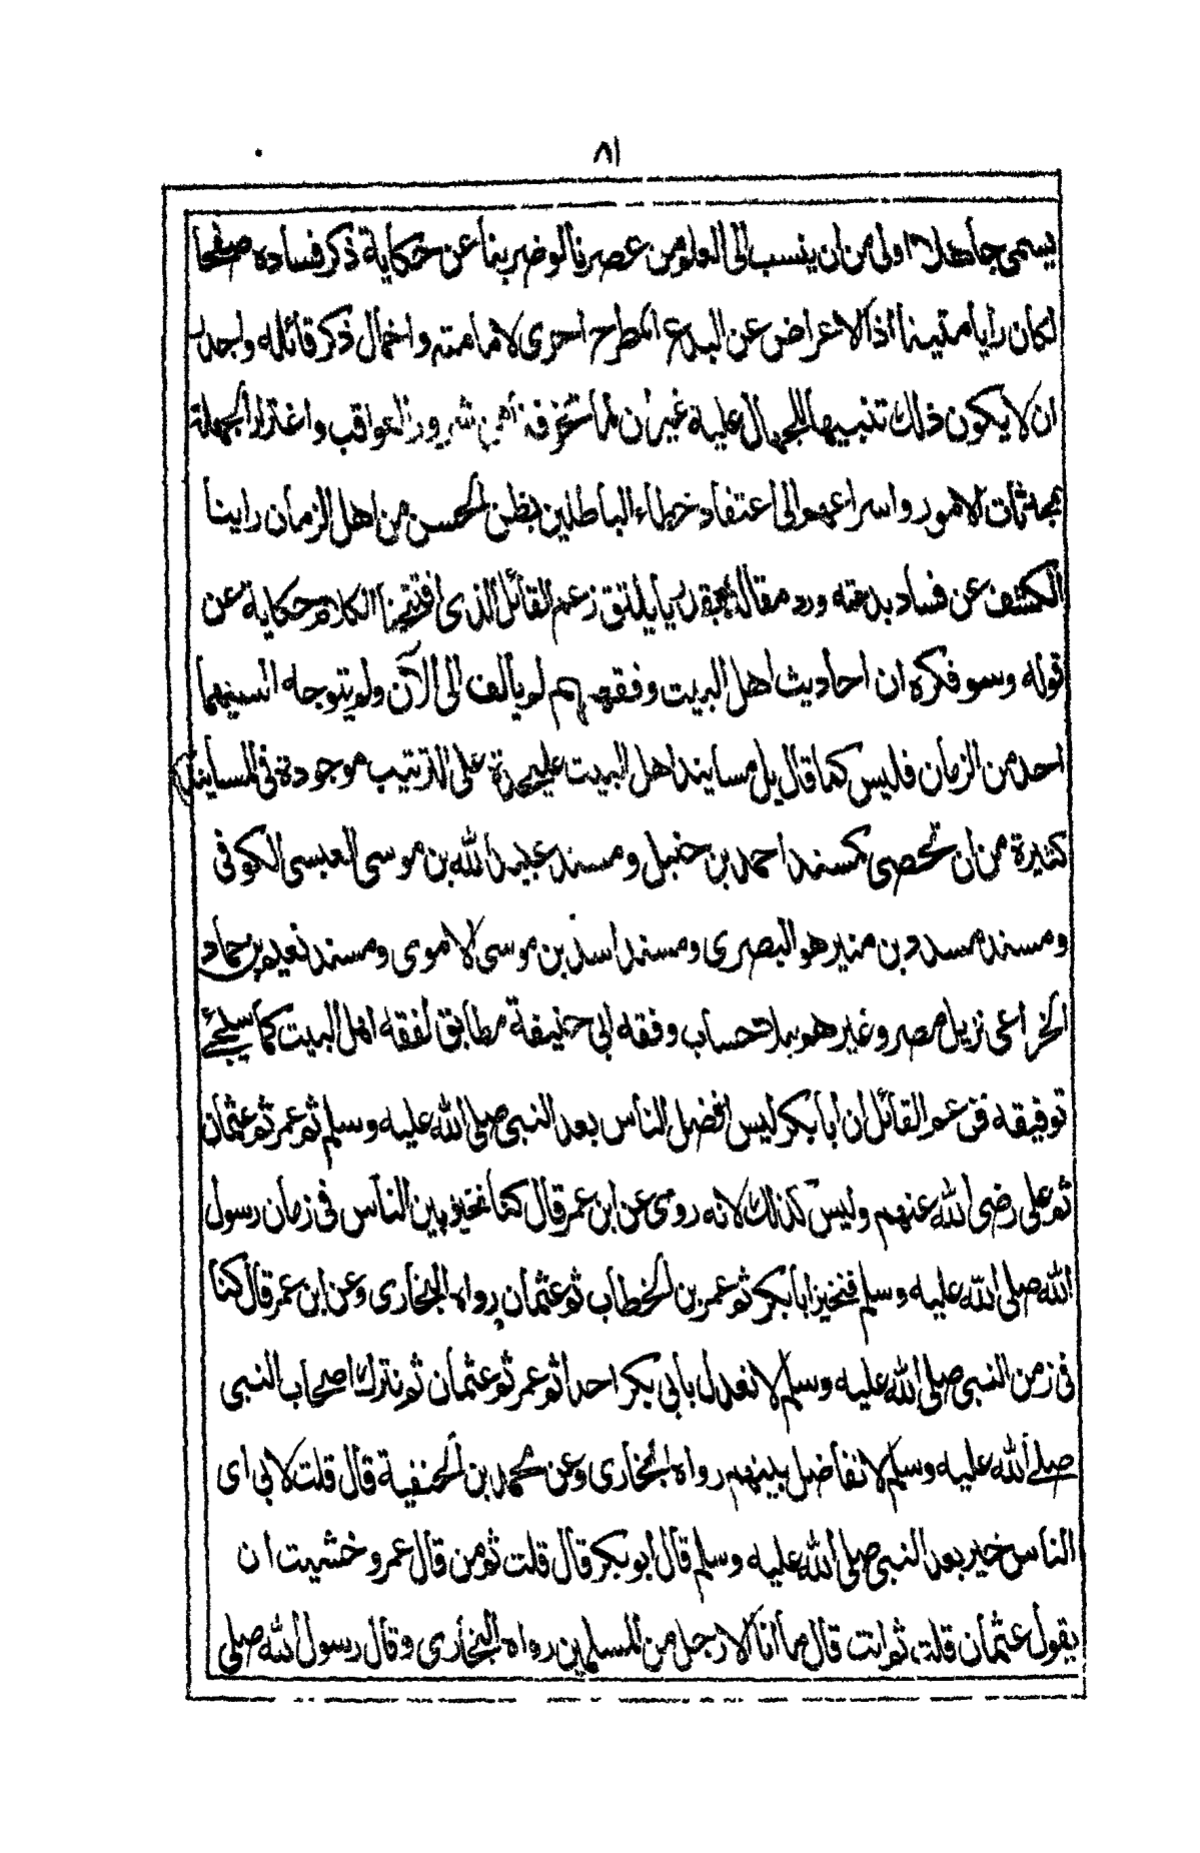 ٨١
يسمى جاهلا اولى من ان ينسب الى العلم ومن عصرنا لو ضربنا عن حكاية ذكر فساده صفحا
لكان رايا متينا اذ الاعراض عن البدع المطرح احرى لاماتته واخمال ذكر قائله واجدر
ان لا يكون ذلك تنبيها للجهال عليه غير ان لما تخوفنا من شرور العواقب واغترار الجهلة
بمحدثات الامور واسراعهم الى اعتقاد خطاء الباطلين بظن الحسن من اهل الزمان راينا
الكشف عن فساد بدعته ورد مقالته بقدر يا يليق زعم القائل الذى افتتحنا الكلام حكاية عن
قوله وسو فكره ان احاديث اهل البيت وفقههم لم يالف الى الآن ولم يتوجه اليهما
احد من الزمان فليس كما قال بل مسايند اهل البيت عليحدة على الترتيب موجودة فى المسايند
كثيرة من ان تحصى كمسند احمد بن حنبل ومسند عبيد الله بن موسى العبسى الكوفى
ومسند مسدد بن منير هو البصرى ومسند اسد بن موسى الاموى ومسند نعيم بن حماد
الخزاعى نزيل مصر وغيرهم بلا حساب وفقه ابى حنيفة مطابق لفقه اهل البيت كما سيجئ
توفيقه فزعم القائل ان ابا بكر ليس افضل الناس بعد النبى صلى الله عليه وسلم ثم عمر ثم عثمان
ثم على رضى الله عنهم وليس كذلك لانه روى عن ابن عمر قال كنا نخير بين الناس فى زمان رسول
الله صلى الله عليه وسلم فنخير ابا بكر ثم عمر بن الخطاب ثم عثمان رواه البخارى وعن ابن عمر قال كنا
فى زمن النبى صلى الله عليه وسلم لا نعدل بابى بكر احدا ثم عمر ثم عثمان ثم نترك اصحاب النبى
صلى الله عليه وسلم لا نفاضل بينهم رواه البخارى وعن محمد بن الحنفية قال قلت لابى اى
الناس خير بعد النبى صلى الله عليه وسلم قال ابو بكر قال قلت ثم من قال عمر وخشيت ان
يقول عثمان قلت ثم انت قال ما انا الا رجل من المسلمين رواه البخارى وقال رسول الله صلى